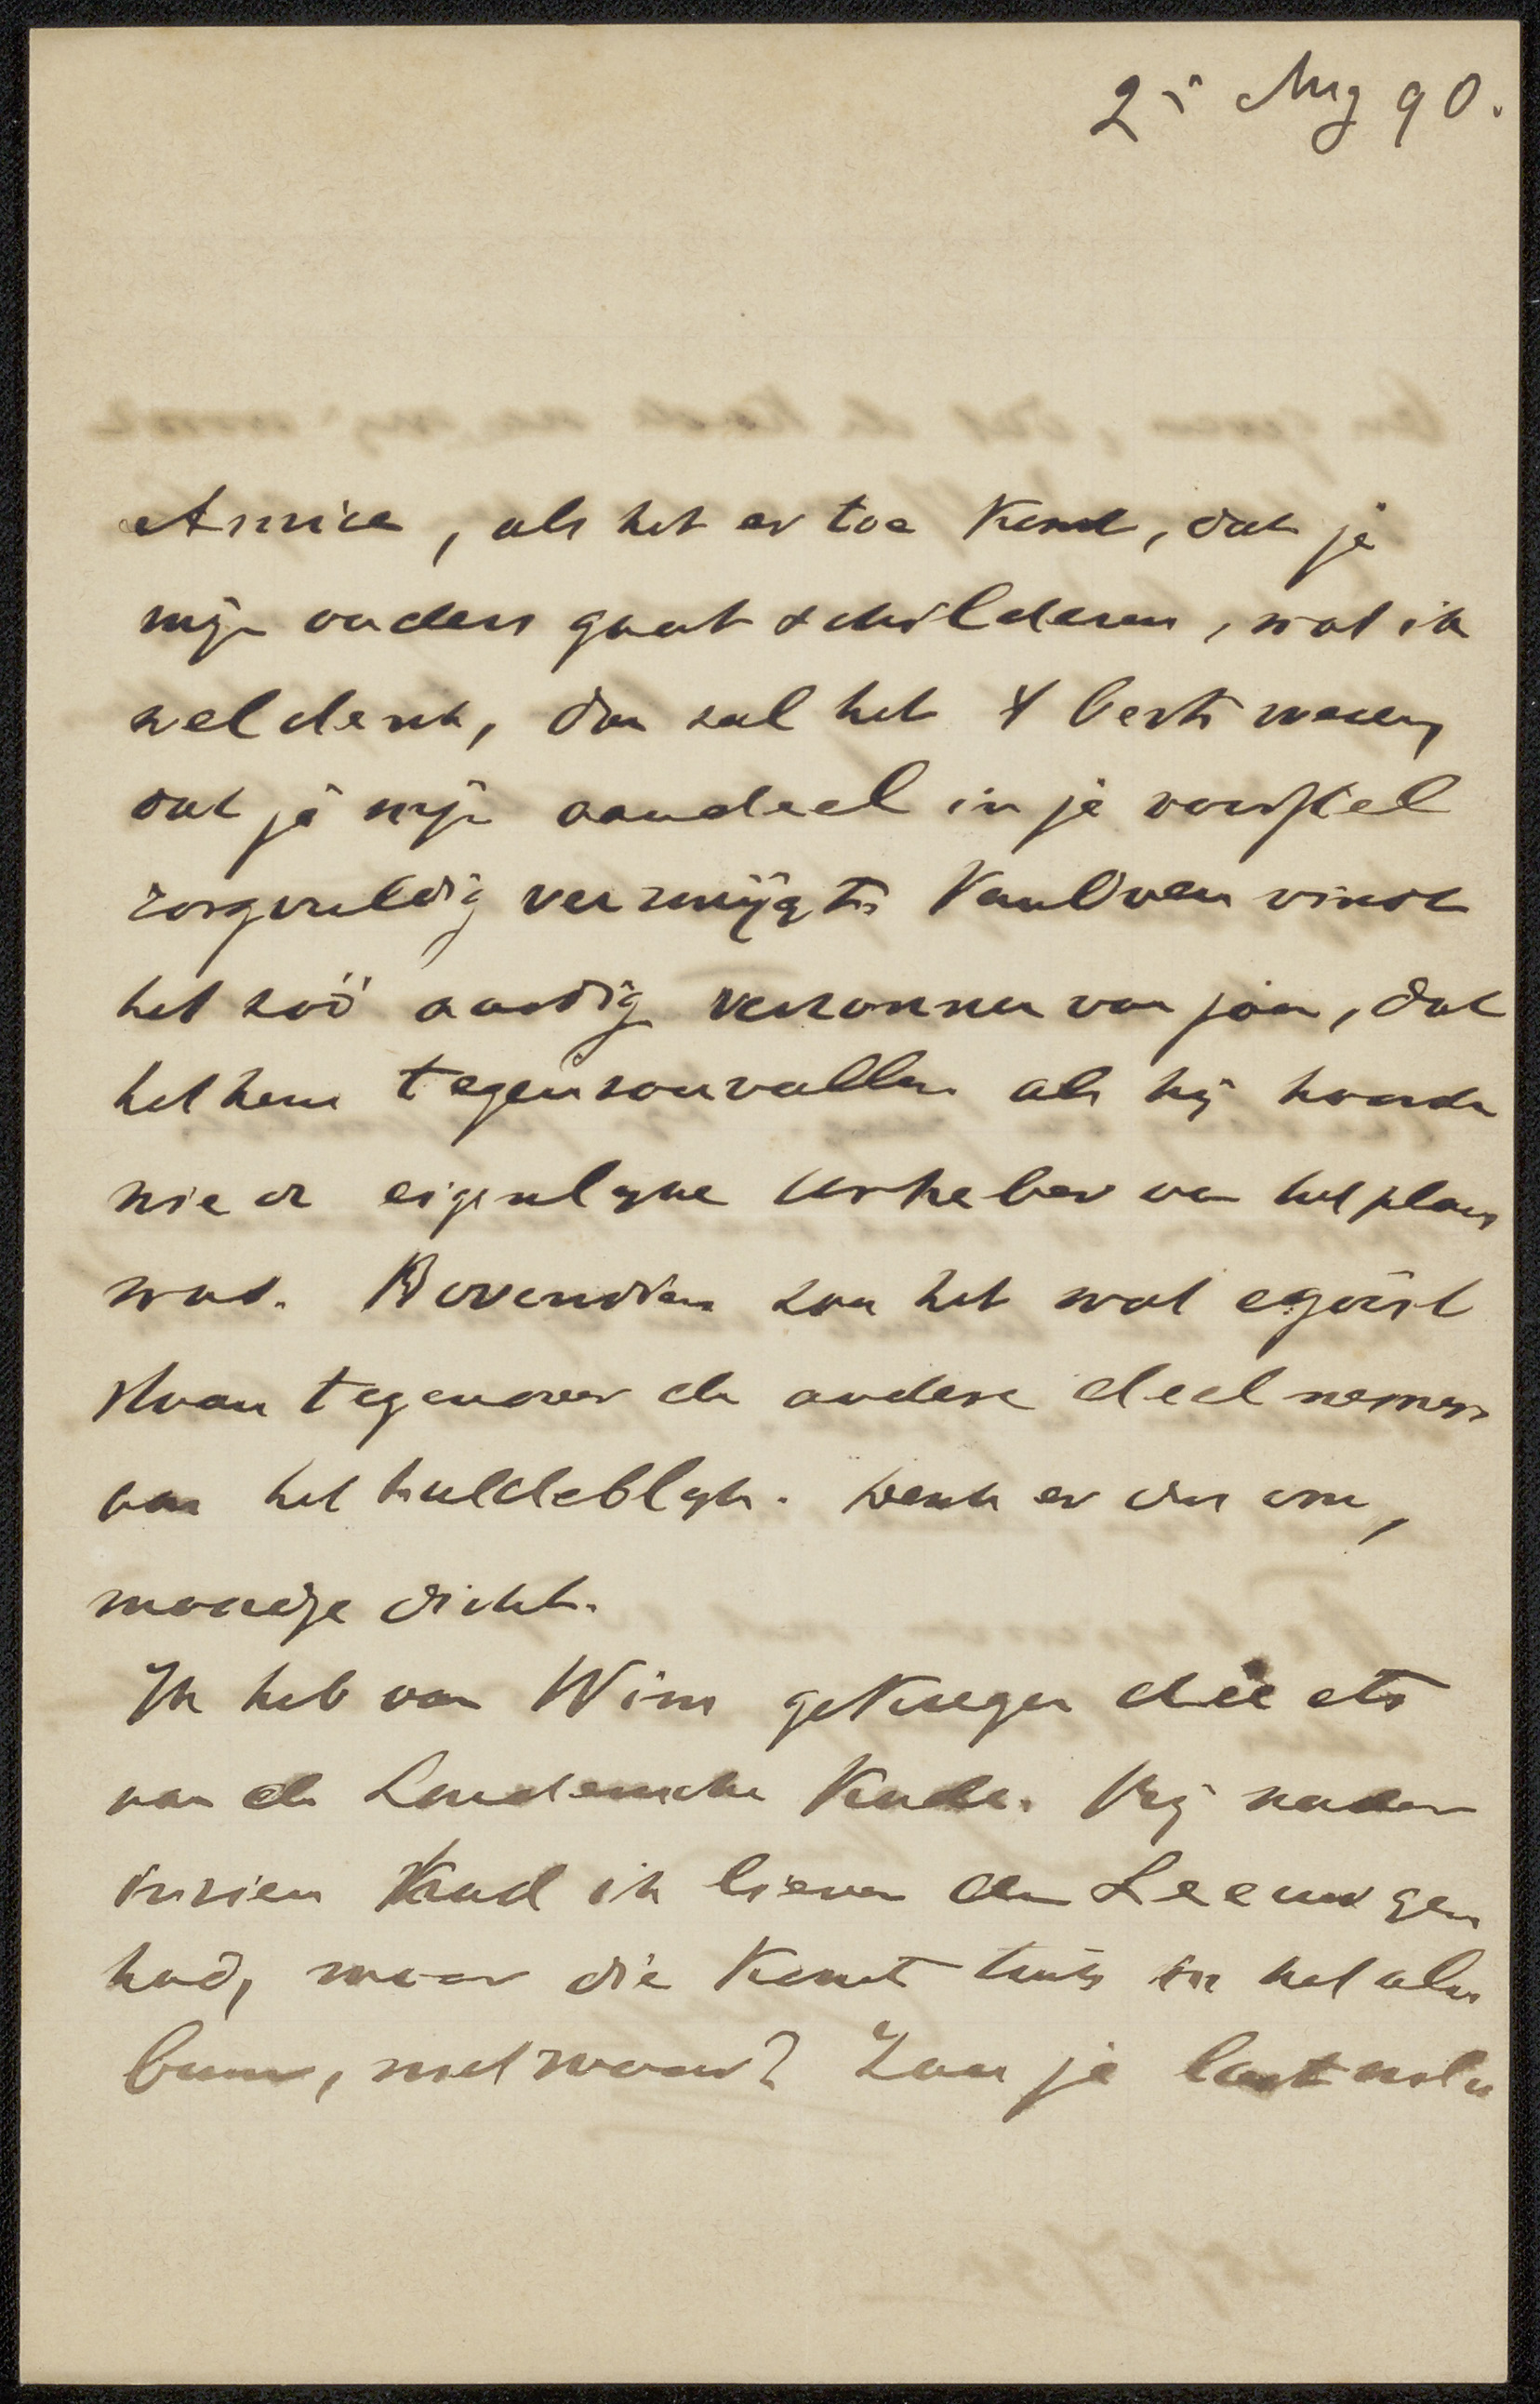 25 Aug 90.
Amice, als het er toe komt, dat je
mijn ouders gaat schilderen, wat ik
wel denk, dan zal het 't beste wezen,
dat je mijn aandeel in je voorstel
zorgvuldig verzwijgt. Van Deventer vindt
het zoó aardig verzonnen van jou, dat
het hem tegen zou vallen als hij hoorde
wie de eigenlyke Urheber van het plan
was. Bovendien zou het wat egoïst
staan tegenover de andere deelnemers
aan het huldeblyk. Denk er dus om,
mondje dicht.
Ik heb van Wim gekregen die ets
van de Londensche Kade. Bij nader
inzien had ik liever den Leeuw ge-
had, maar die komt thuis in het al-
bum, niet waar? Zou je laat